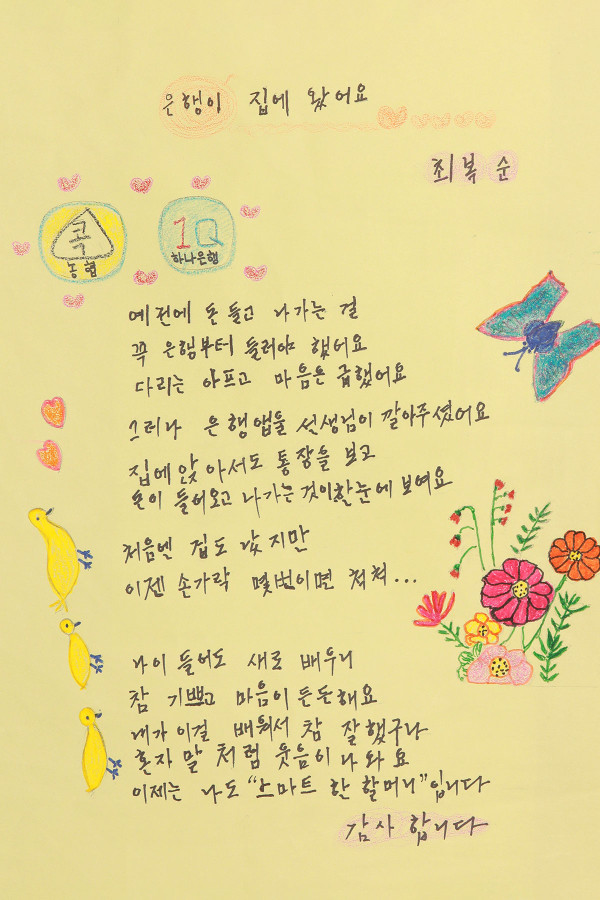 은행이 집에 왔어요
최복순
콕
농협
1Q
하나은행
예전에 돈 들고 나가는 걸
꼭 은행부터 들러야 했어요
다리는 아프고 마음은 급했어요
그러나 은행앱을 선생님이 깔아주셨어요
집에 앉아서도 통장을 보고
돈이 들어오고 나가는것이한눈에 보여요
처음엔 겁도 났지만
이젠 손가락 몇번이면 척척...
나이 들어도 새로 배우니
참 기쁘고 마음이 든든해요
내가 이걸 배워서 참 잘했구나
혼자 말 처럼 웃음이 나와요
이제는 나도 "스마트 한 할머니"입니다
감사 합니다